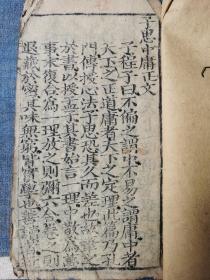 子思中庸正文
子程子曰不偏之謂中不易之謂庸中者
天下之正道庸者天下之定理此篇乃孔
門傳授心法子思恐其久而差也故筆之
於書以授孟子其書始言一理中散為萬
事末復合為一理放之則彌六合卷之則
退藏於密其味無窮皆實學也善讀者